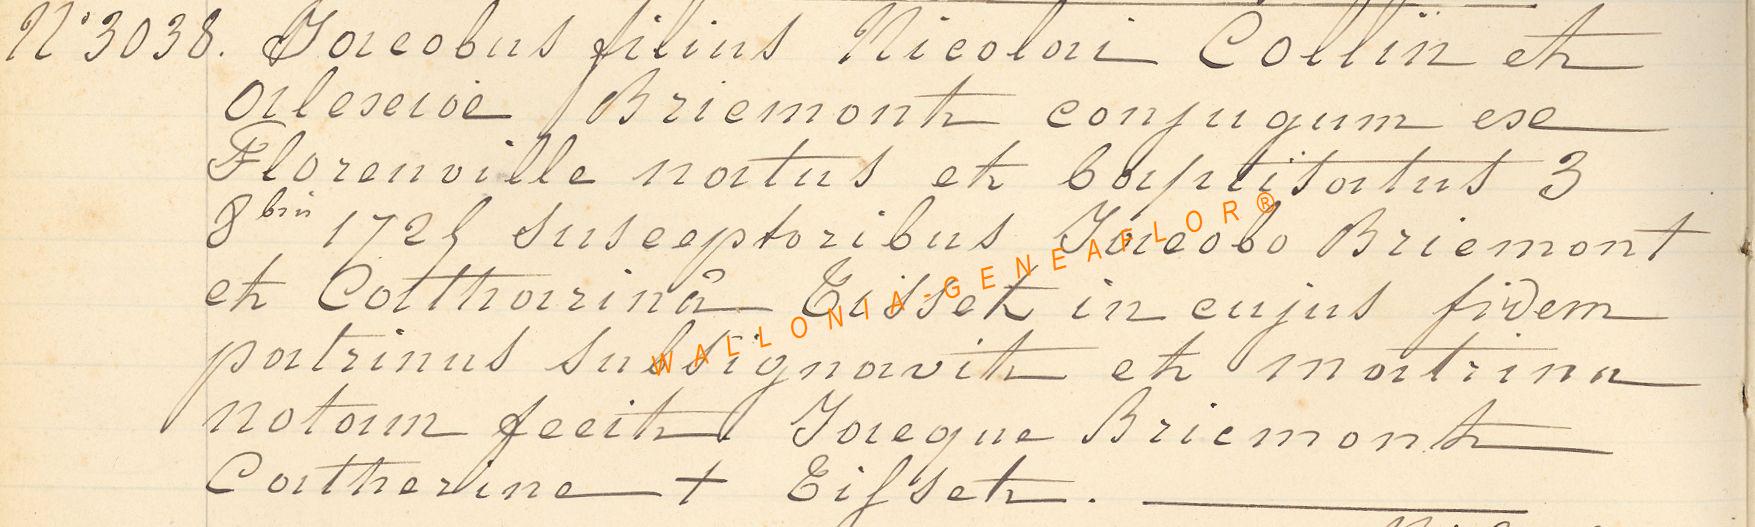 N° 3038. Jacobus filius Nicolai Collin et
Alexiae Briemont conjugum ex
Florenville natus et baptisatus 3
8bris susceptoribus Jacobo Briemont
et Catharinâ Eisset in cujus fidem
patrinus subsignavit et matrina
notam fecit Jacque Briemont
Catherine + Eisset.
WALLONIA-GENEAFLOR®